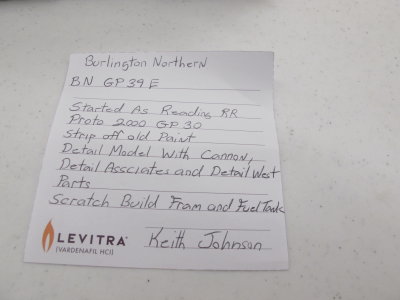 Burlington Northern
BN GP39E
Started As Reading RR
Proto 2000 GP30
Strip off old Paint
Detail Model With Cannon,
Detail Assciates and Detail West
Parts
Scratch Build Fram and Fuel Tank
LEVITRA
(VARDENAFIL HCl)
Keith Johnson